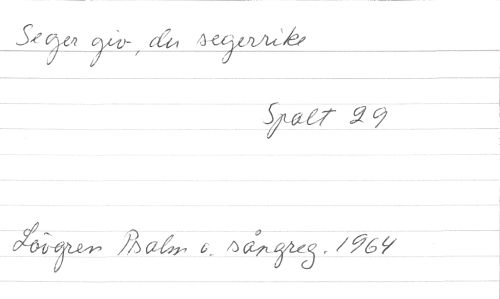 Seger giv, du segerrike
Spalt 29
Lövgren Psalm o. sångreg. 1964